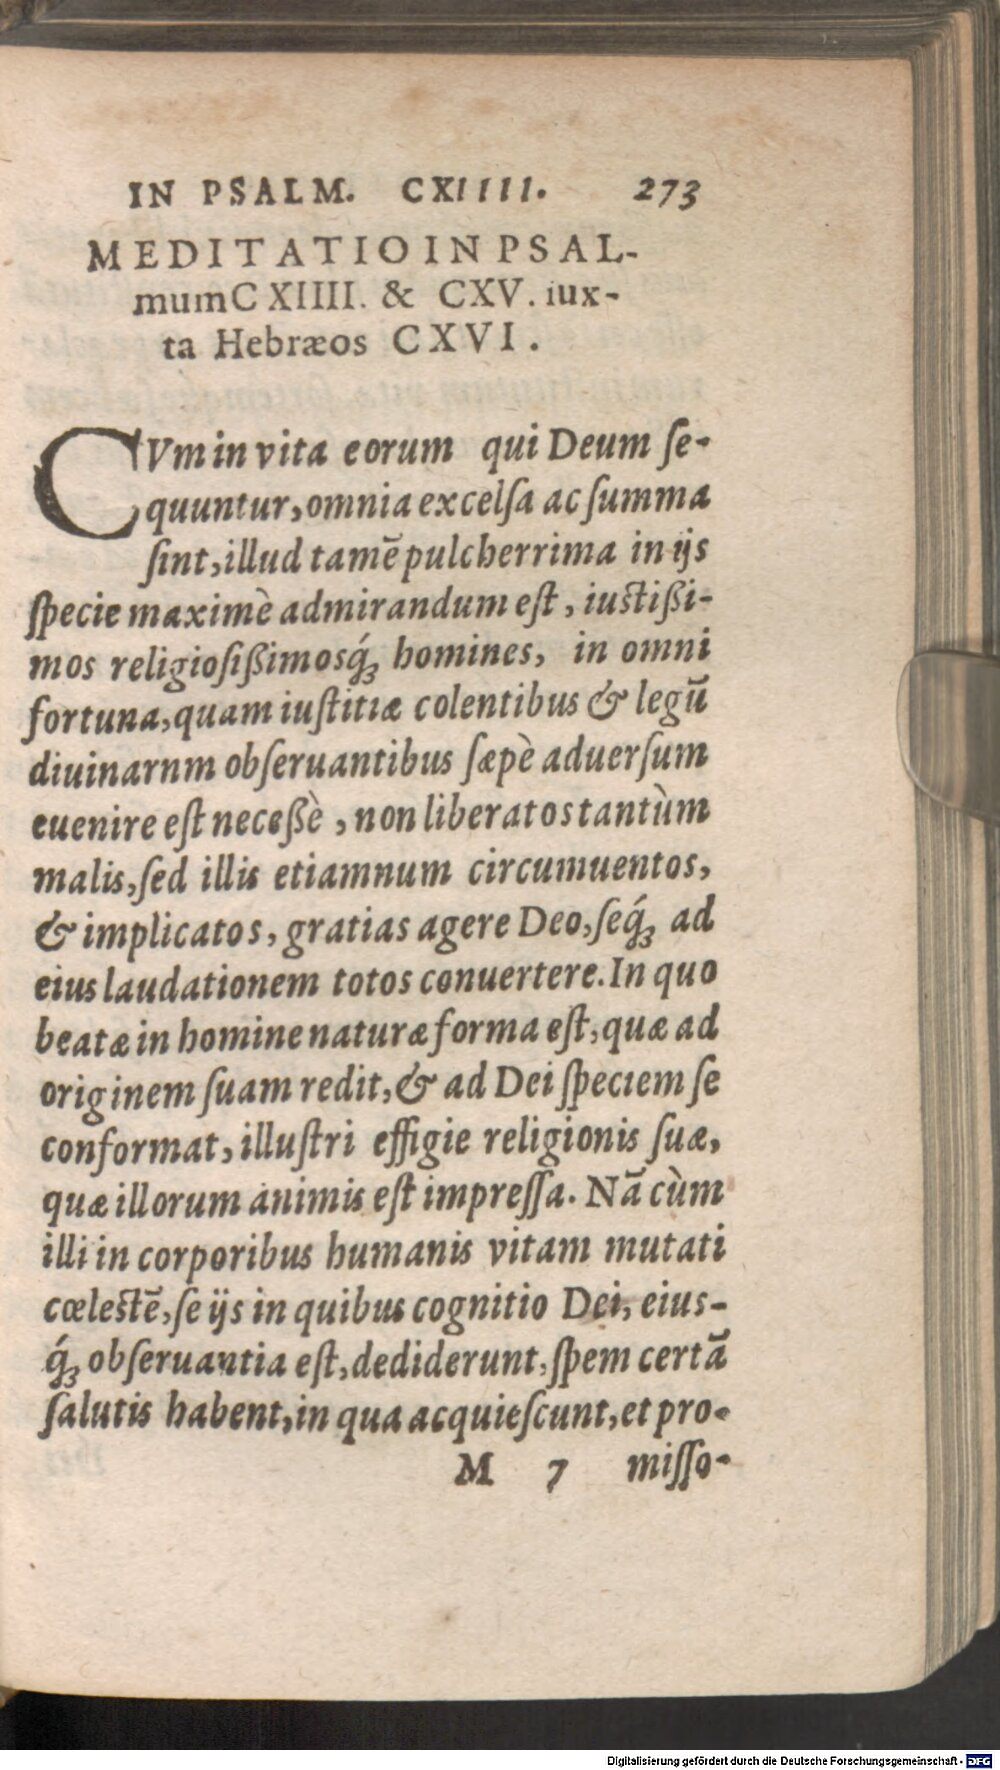 IN PSALM. CXIIII. 273
MEDITATIO IN PSAL-
mum CXIIII. & CXV. iux-
ta Hebræos CXVI.
CVm in vita eorum qui Deum ſe-
quuntur, omnia excelſa ac ſumma
ſint, illud tamē pulcherrima in ijs
ſpecie maximè admirandum eſt, iuſtißi-
mos religioſißimosq́ꝫ homines, in omni
fortuna, quam iuſtitiæ colentibus & legū
diuinarnm obſeruantibus ſæpè aduerſum
euenire eſt neceßè, non liberatos tantùm
malis, ſed illis etiamnum circumuentos,
& implicatos, gratias agere Deo, ſeq́ꝫ ad
eius laudationem totos conuertere. In quo
beatæ in homine naturæ forma eſt, quæ ad
originem ſuam redit, & ad Dei ſpeciem ſe
conformat, illuſtri effigie religionis ſuæ,
quæ illorum animis eſt impreſſa. Nā cùm
illi in corporibus humanis vitam mutati
cœleſtē, ſe ijs in quibus cognitio Dei, eius-
q́ꝫ obſeruantia eſt, dediderunt, ſpem certā
ſalutis habent, in qua acquieſcunt, et pro-
M 7 miſſo-
Digitalisierung gefördert durch die Deutsche Forschungsgemeinschaft - DFG